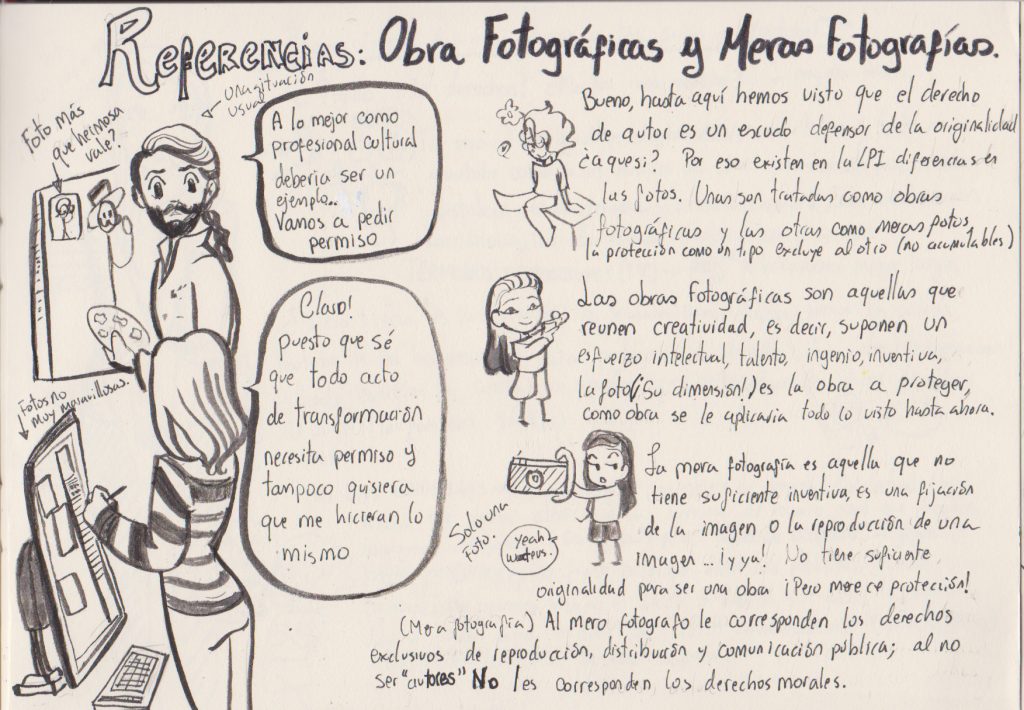 Referencias: Obra Fotográficas y Meras Fotografías.
una situación
usual
Foto más
que hermosa
vale?
A lo mejor como
profesional cultural
debería ser un
ejemplo..
Vamos a pedir
permiso
Claro!
puesto que sé
que todo acto
de transformación
necesita permiso y
tampoco quisiera
que me hicieran lo
mismo
Fotos no
muy maravillosas.
Bueno, hasta aquí hemos visto que el derecho
de autor es un escudo defensor de la originalidad
¿a que si? Por eso existen en la LPI diferencias en
las fotos. Unas son tratadas como obras
fotográficas y las otras como meras fotos,
la protección como un tipo excluye al otro (no acumulables)
Las obras fotográficas son aquellas que
reunen creatividad, es decir, suponen un
esfuerzo intelectual, talento, ingenio, inventiva,
la foto (¡Su dimensión!) es la obra a proteger,
como obra se le aplicaria todo lo visto hasta ahora.
Solo una
foto.
yeah
La mera fotografía es aquella que no
tiene suficiente inventiva, es una fijación
de la imagen o la reproducción de una
imagen ... ¡y ya! No tiene suficiente
originalidad para ser una obra ¡Pero merece protección!
(Mera fotografía) Al mero fotografo le corresponden los derechos
exclusivos de reproducción, distribución y comunicación pública; al no
ser "autores" No les corresponden los derechos morales.